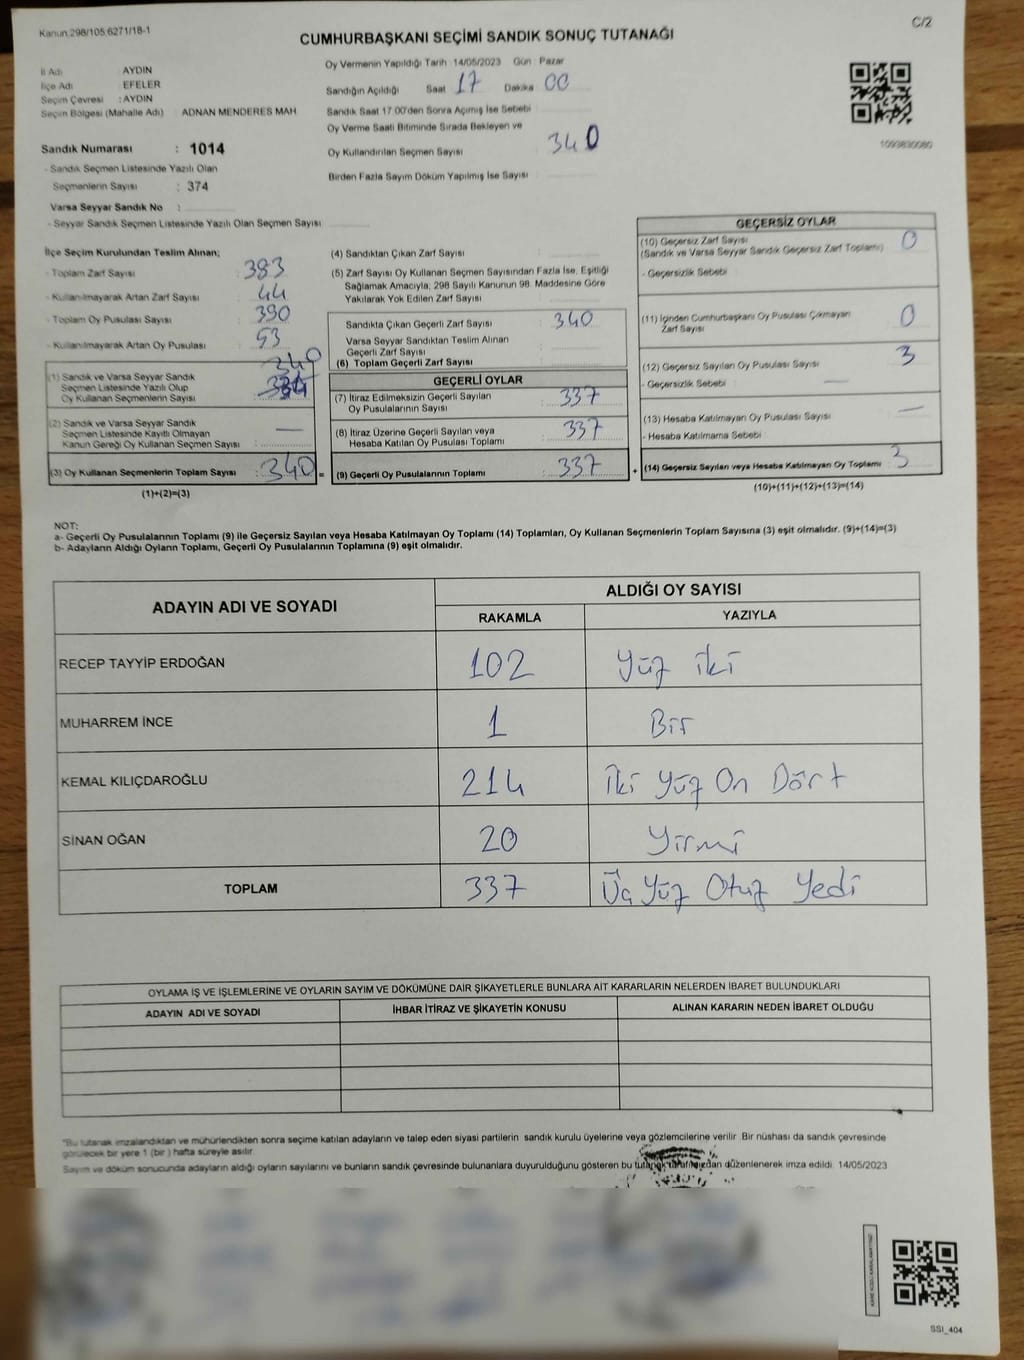 Kanun 298/105,6271/18-1
C/2
CUMHURBAŞKANI SEÇİMİ SANDIK SONUÇ TUTANAĞI
İl Adı AYDIN
İlçe Adı EFELER
Seçim Çevresi : AYDIN
Seçim Bölgesi (Mahalle Adı) : ADNAN MENDERES MAH
Sandık Numarası : 1014
- Sandık Seçmen Listesinde Yazılı Olan
Seçmenlerin Sayısı : 374
Varsa Seyyar Sandık No :
- Seyyar Sandık Seçmen Listesinde Yazılı Olan Seçmen Sayısı
Oy Vermenin Yapıldığı Tarih : 14/05/2023 Gün : Pazar
Sandığın Açıldığı Saat 17 Dakika 00
Sandık Saat 17.00'den Sonra Açılmış İse Sebebi
Oy Verme Saati Bitiminde Sırada Bekleyen ve
Oy Kullandırılan Seçmen Sayısı 340
Birden Fazla Sayım Döküm Yapılmış İse Sayısı
1093830080
İlçe Seçim Kurulundan Teslim Alınan;
- Toplam Zarf Sayısı : 383
- Kullanılmayarak Artan Zarf Sayısı : 44
- Toplam Oy Pusulası Sayısı : 390
- Kullanılmayarak Artan Oy Pusulası : 53
(1) Sandık ve Varsa Seyyar Sandık 340
Seçmen Listesinde Yazılı Olup
Oy Kullanan Seçmenlerin Sayısı
(2) Sandık ve Varsa Seyyar Sandık
Seçmen Listesinde Kayıtlı Olmayan —
Kanun Gereği Oy Kullanan Seçmen Sayısı :
(3) Oy Kullanan Seçmenlerin Toplam Sayısı : 340 =
(1)+(2)=(3)
(4) Sandıktan Çıkan Zarf Sayısı
(5) Zarf Sayısı Oy Kullanan Seçmen Sayısından Fazla İse, Eşitliği
Sağlamak Amacıyla; 298 Sayılı Kanunun 98. Maddesine Göre
Yakılarak Yok Edilen Zarf Sayısı
Sandıkta Çıkan Geçerli Zarf Sayısı : 340
Varsa Seyyar Sandıktan Teslim Alınan
Geçerli Zarf Sayısı
(6) Toplam Geçerli Zarf Sayısı
GEÇERLİ OYLAR
(7) İtiraz Edilmeksizin Geçerli Sayılan
Oy Pusulalarının Sayısı : 337
(8) İtiraz Üzerine Geçerli Sayılan veya
Hesaba Katılan Oy Pusulası Toplamı : 337
(9) Geçerli Oy Pusulalarının Toplamı : 337 +
GEÇERSİZ OYLAR
(10) Geçersiz Zarf Sayısı 0
(Sandık ve Varsa Seyyar Sandık Geçersiz Zarf Toplamı)
- Geçersizlik Sebebi
(11) İçinden Cumhurbaşkanı Oy Pusulası Çıkmayan 0
Zarf Sayısı
(12) Geçersiz Sayılan Oy Pusulası Sayısı : 3
- Geçersizlik Sebebi : —
(13) Hesaba Katılmayan Oy Pusulası Sayısı : —
- Hesaba Katılmama Sebebi :
(14) Geçersiz Sayılan veya Hesaba Katılmayan Oy Toplamı : 3
(10)+(11)+(12)+(13)=(14)
NOT:
a- Geçerli Oy Pusulalarının Toplamı (9) ile Geçersiz Sayılan veya Hesaba Katılmayan Oy Toplamı (14) Toplamları, Oy Kullanan Seçmenlerin Toplam Sayısına (3) eşit olmalıdır. (9)+(14)=(3)
b- Adayların Aldığı Oyların Toplamı, Geçerli Oy Pusulalarının Toplamına (9) eşit olmalıdır.
ADAYIN ADI VE SOYADI ALDIĞI OY SAYISI
RAKAMLA YAZIYLA
RECEP TAYYİP ERDOĞAN 102 Yüz iki
MUHARREM İNCE 1 Bir
KEMAL KILIÇDAROĞLU 214 İki Yüz On Dört
SİNAN OĞAN 20 Yirmi
TOPLAM 337 Üç Yüz Otuz Yedi
OYLAMA İŞ VE İŞLEMLERİNE VE OYLARIN SAYIM VE DÖKÜMÜNE DAİR ŞİKAYETLERLE BUNLARA AİT KARARLARIN NELERDEN İBARET BULUNDUKLARI
ADAYIN ADI VE SOYADI İHBAR İTİRAZ VE ŞİKAYETİN KONUSU ALINAN KARARIN NEDEN İBARET OLDUĞU
*Bu tutanak imzalandıktan ve mühürlendikten sonra seçime katılan adayların ve talep eden siyasi partilerin sandık kurulu üyelerine veya gözlemcilerine verilir. Bir nüshası da sandık çevresinde
görülecek bir yere 1 (bir) hafta süreyle asılır.
Sayım ve döküm sonucunda adayların aldığı oyların sayılarını ve bunların sandık çevresinde bulunanlara duyurulduğunu gösteren bu tutanak tarafımızdan düzenlenerek imza edildi. 14/05/2023
SSI_404